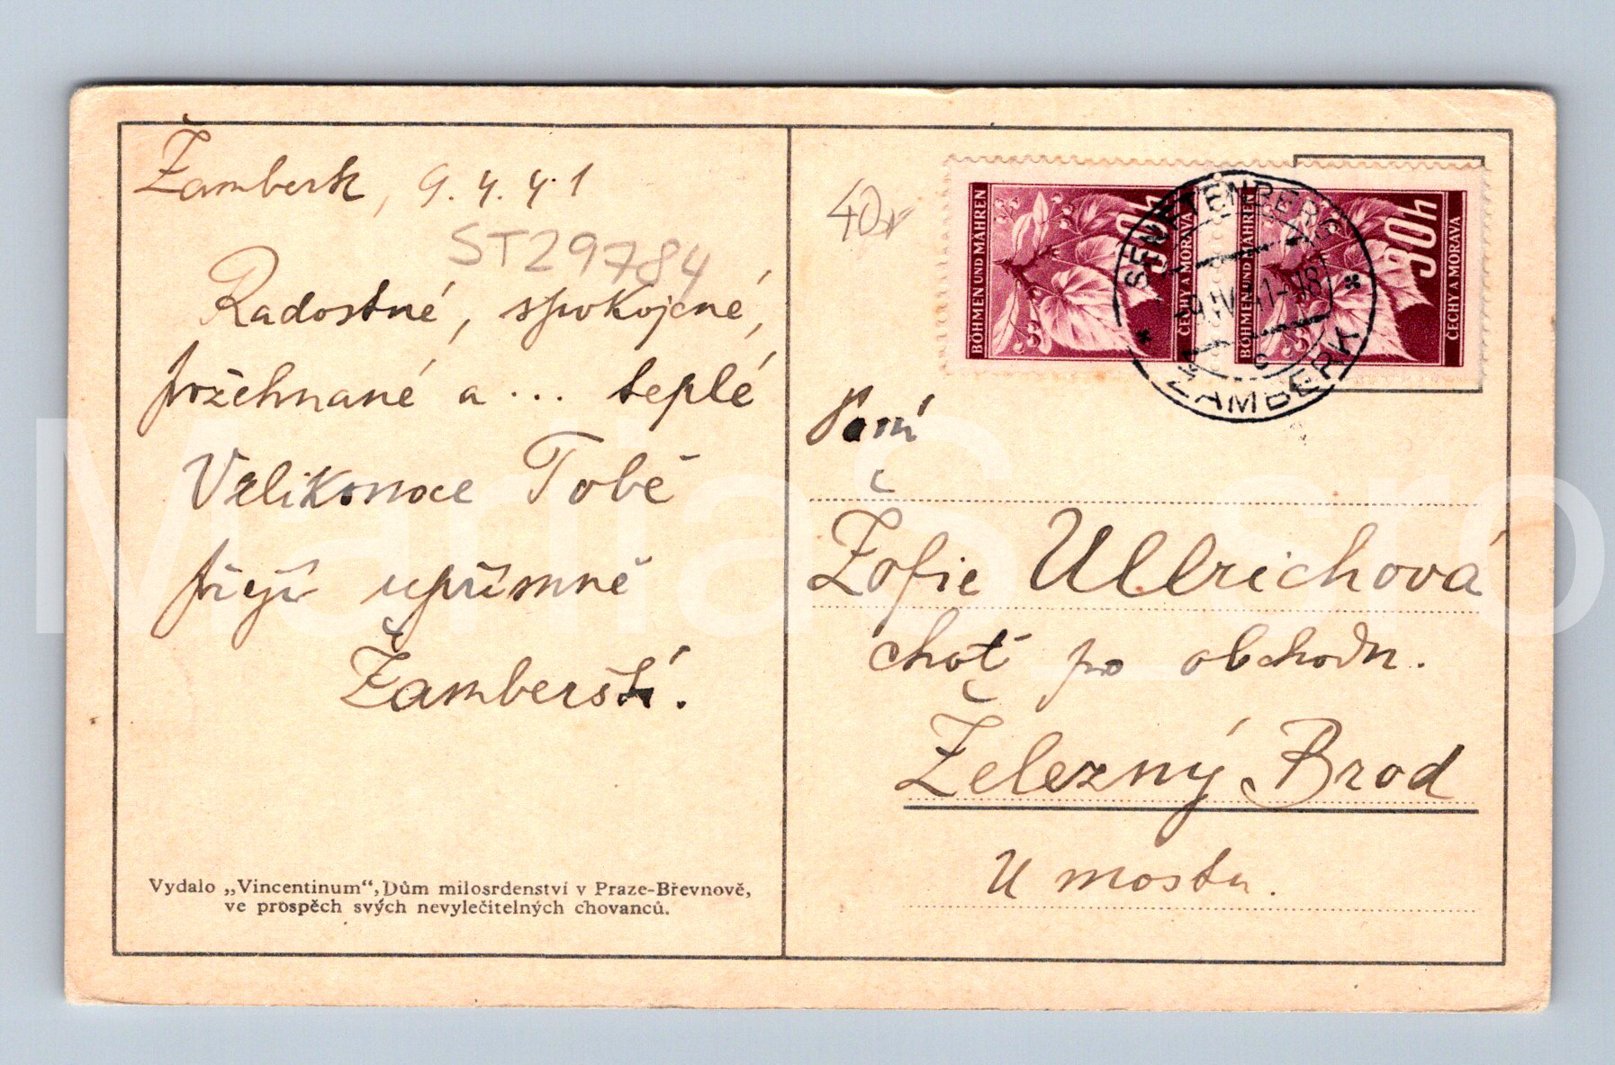 Žamberk, 9.4.41
ST29784
Radostné, spokojené,
požehnané a ... teplé
Velikonoce Tobě
přejí upřímně
Žamberští.
Vydalo „Vincentinum“, Dům milosrdenství v Praze-Břevnově,
ve prospěch svých nevyléčitelných chovanců.
40
BÖHMEN UND MÄHREN
30h
ČECHY A MORAVA
BÖHMEN UND MÄHREN
30h
ČECHY A MORAVA
SENFTENBERG
-9.IV.41-18
c
ŽAMBERK
Paní
Žofie Ullrichová
choť po obchodn.
Železný Brod
U mostu.